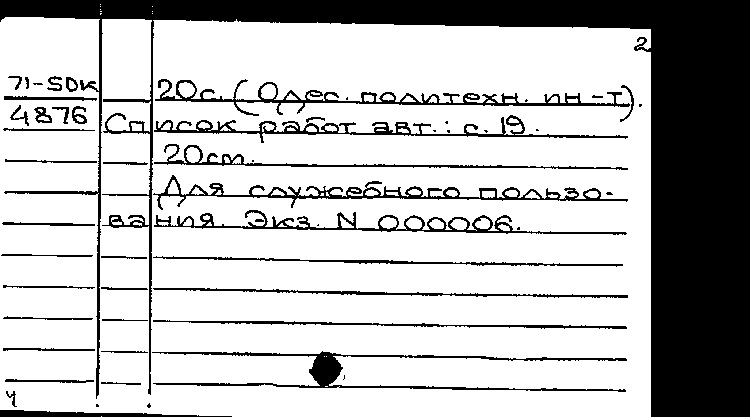 2
71-SDK 20с. (Одес. политехн. ин-т).
4876 Список работ авт.: с. 19.
20ст.
Для служебного пользо-
вания. Экз. N 000006.
Ч